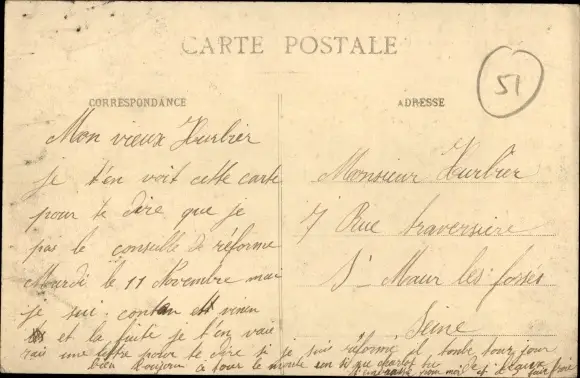 CARTE POSTALE
51
CORRESPONDANCE
ADRESSE
Mon vieux Hurbier
je t'en voit cette carte
pour te dire que je
pas le conseille de réforme
Mardi le 11 Novembre mai
je sui contan et vien
et la suite je t'en vai
rais une lettre pour te dire si je suis réformé il tombe tour jour
bien Bonjour a tour le monde
Monsieur Hurbier
7 Rue traversière
St Maur les fossés
Seine